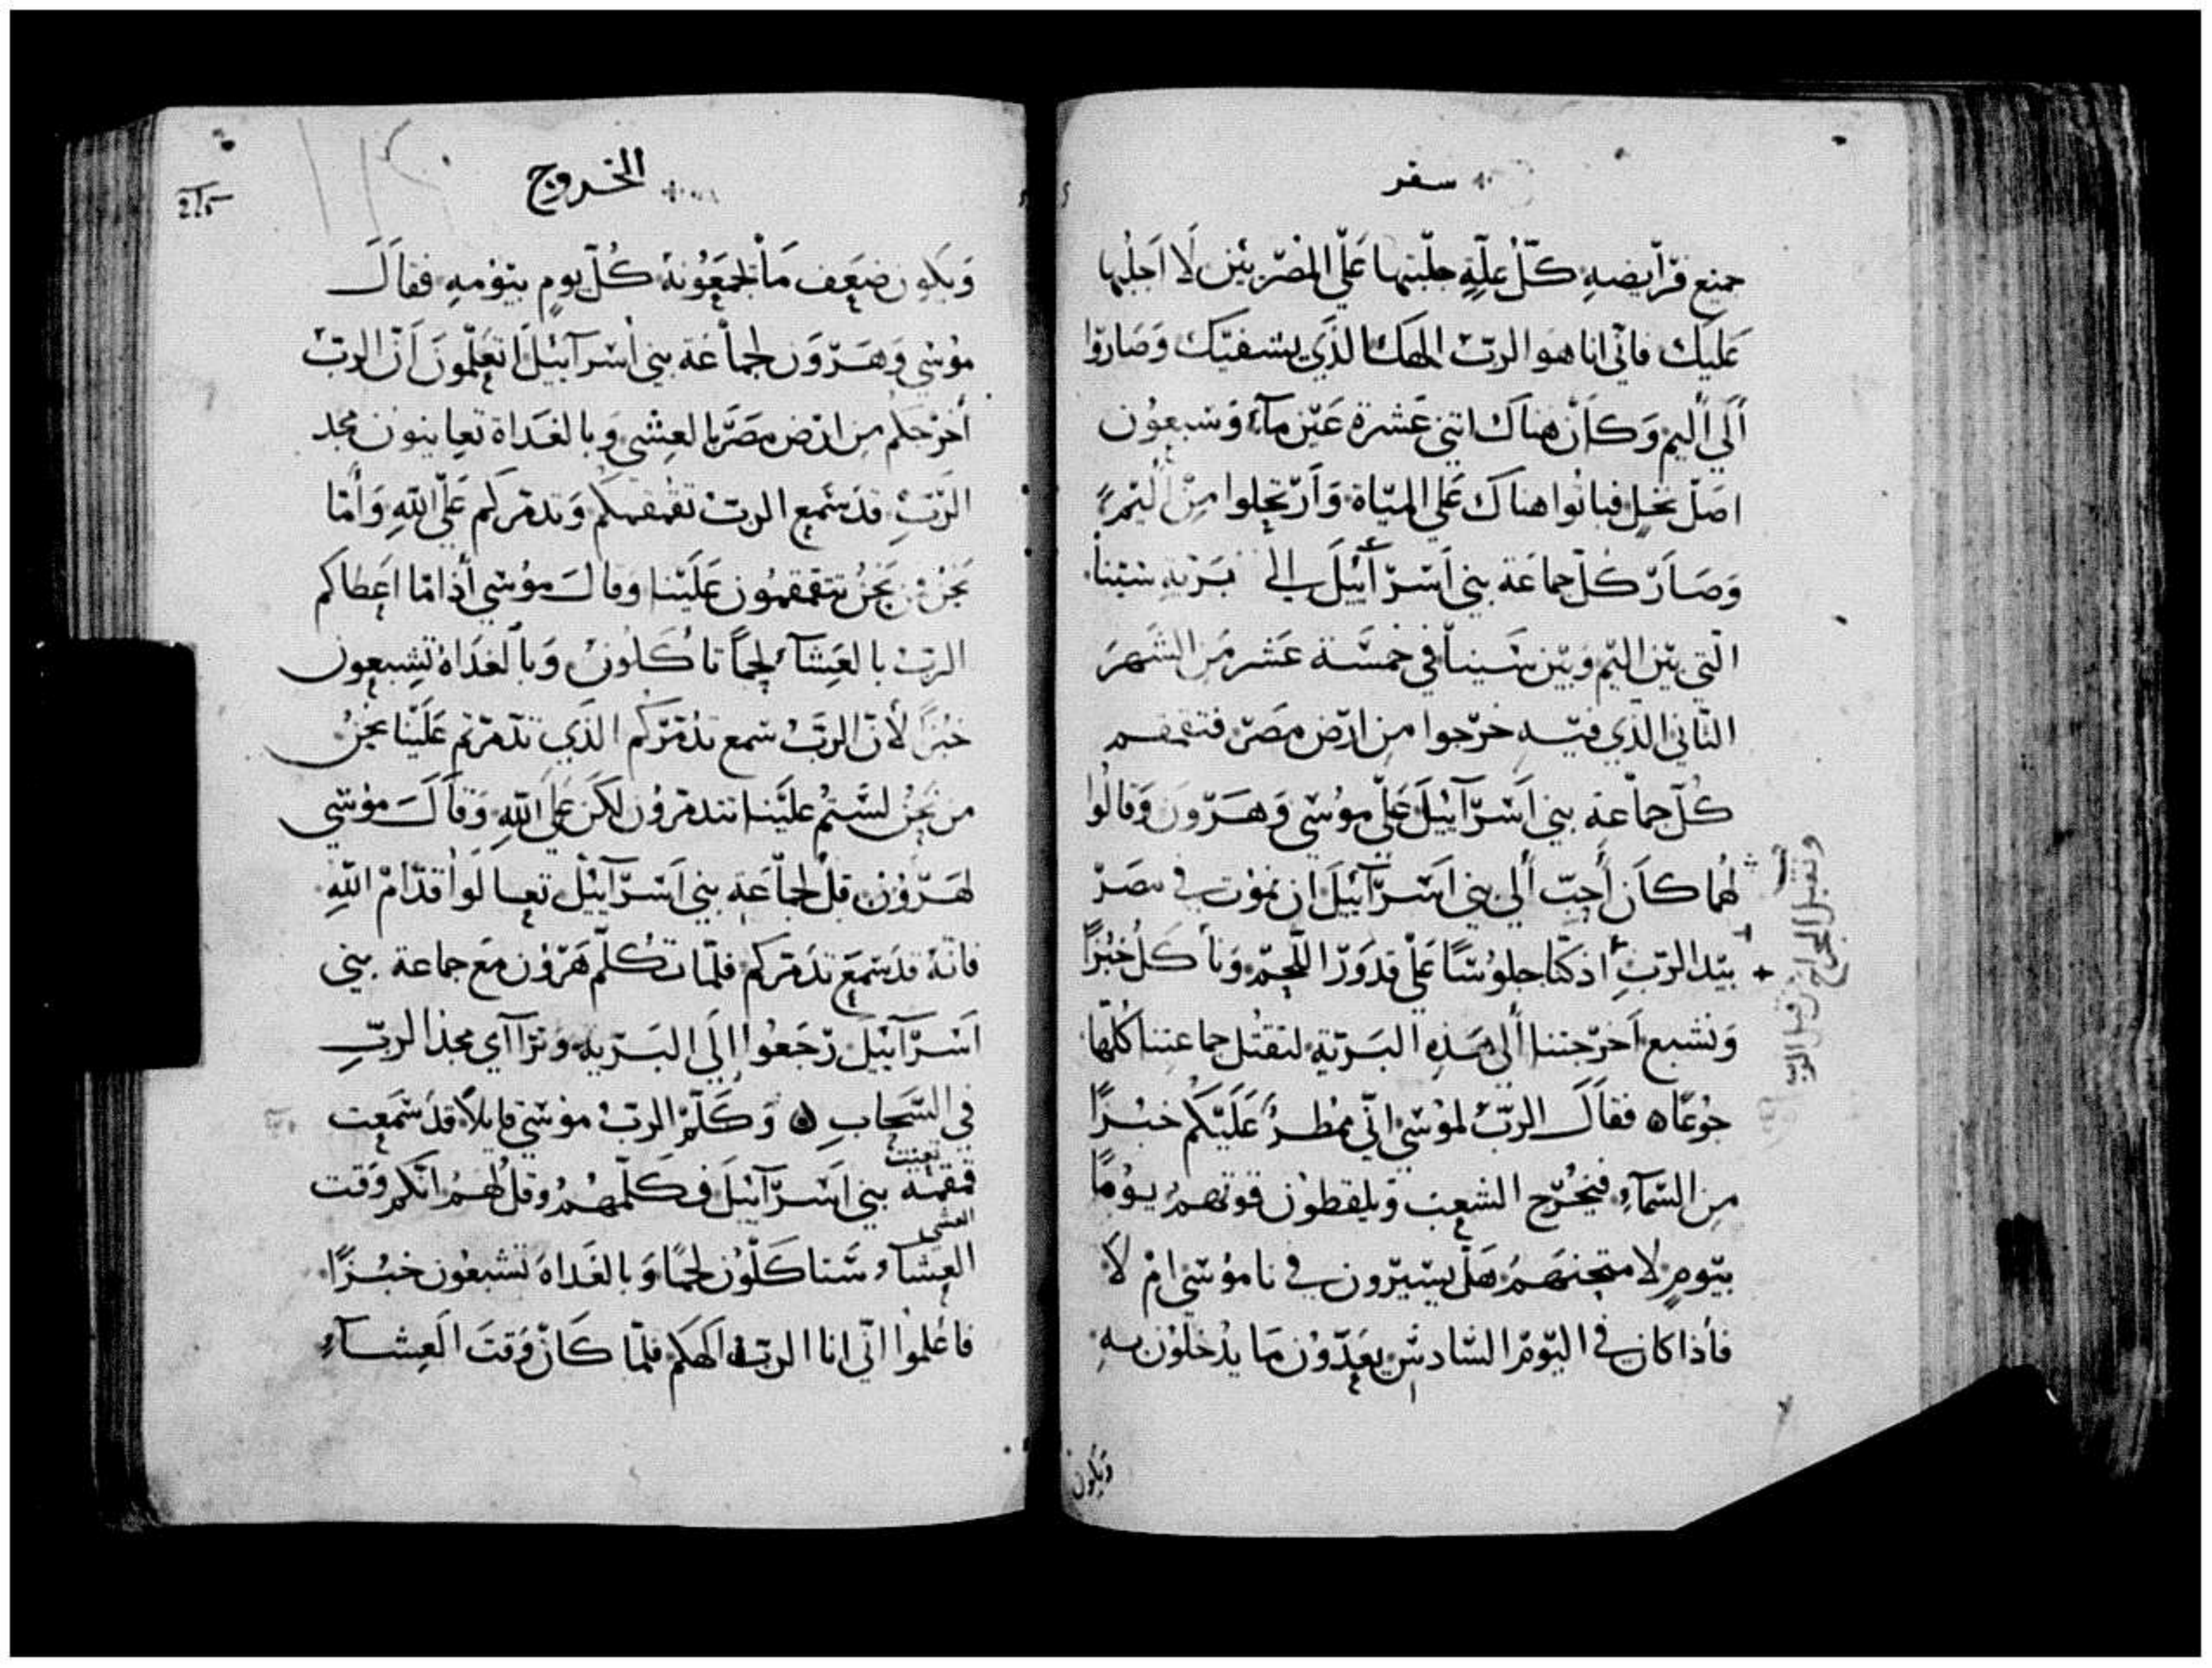 سفر
جميع فرايضه كل علة جلبتها على المصريين لا اجلبها
عليك فاني انا هو الرب الهك الذي يشفيك وصاروا
الي اليم وكان هناك اتني عشرة عين مآء وسبعون
اصل نخل فباتوا هناك علي المياة وارتحلوا من اليم
وصار كل جماعة بني اسرآييل الي برية سينا
التي بين اليم وبين سينا في خمسة عشر من الشهر
التاني الذي فيه خرجوا من ارض مصر فتقمقم
كل جماعة بني اسرآييل علي موسي وهرون وقالوا
لهما كان أحب ألي بني اسرآييل ان نموت في مصر
بيد الرب اذ كنا جلوسًا علي قدور اللحم وناكل خبزًا
ونشبع اخرجتنا ألي هذه البرية لتقتل جماعتنا كلها
جوعًا ه فقال الرب لموسي اني ممطر عليكم خبزًا
من السمآء فيخرج الشعب ويلقطون قوتهم يومًا
بيوم لامتحنهم هل يسيرون في ناموسي ام لا
فأذا كان في اليوم السادس يعدون ما يدخلون به
ويكون
الخروج
215
ويكون ضعف ما يجمعونه كل يوم بيومه فقال
موسي وهرون لجماعة بني اسرآييل تعلمون ان الرب
أخرجكم من ارض مصر بالعشي وبالغداة تعاينون مجد
الرب قد سمع الرب تقمقمكم وتدمركم علي الله وأما
نحن من نحن تتقمقمون علينا وقال موسي أذا ما اعطاكم
الرب بالعشآ لحمًا تاكلون وبالغداة تشبعون
خبزًا لأن الرب سمع تدمركم الذي تدمرتم علينا نحن
من نحن لستم علينا تتدمرون لكن علي الله وقال موسي
لهرون قل لجماعة بني اسرآييل تعالوا قدام الله
فانه قد سمع تدمركم فلما تكلم هرون مع جماعة بني
اسرآييل رجعوا إلي البرية وترآاي مجد الرب
في السحاب ه وكلم الرب موسي قايلاً قد سمعت
قمقمة بني اسرآييل فكلمهم وقل لهم انكم وقت
العشي
العشآء ستاكلون لحمًا وبالغداة تشبعون خبزًا
فاعلموا اني انا الرب الهكم فلما كان وقت العشآء